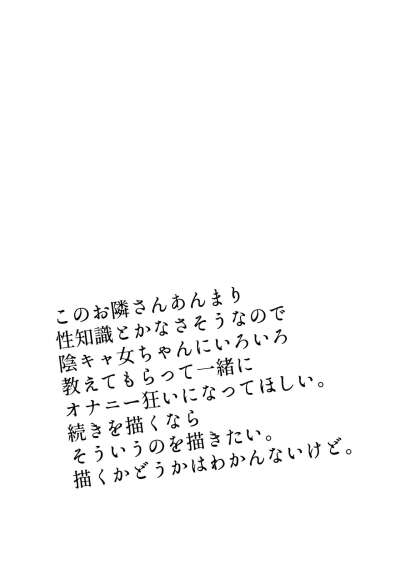 このお隣さんあんまり
性知識とかなさそうなので
陰キャ女ちゃんにいろいろ
教えてもらって一緒に
オナニー狂いになってほしい。
続きを描くなら
そういうのを描きたい。
描くかどうかはわかんないけど。